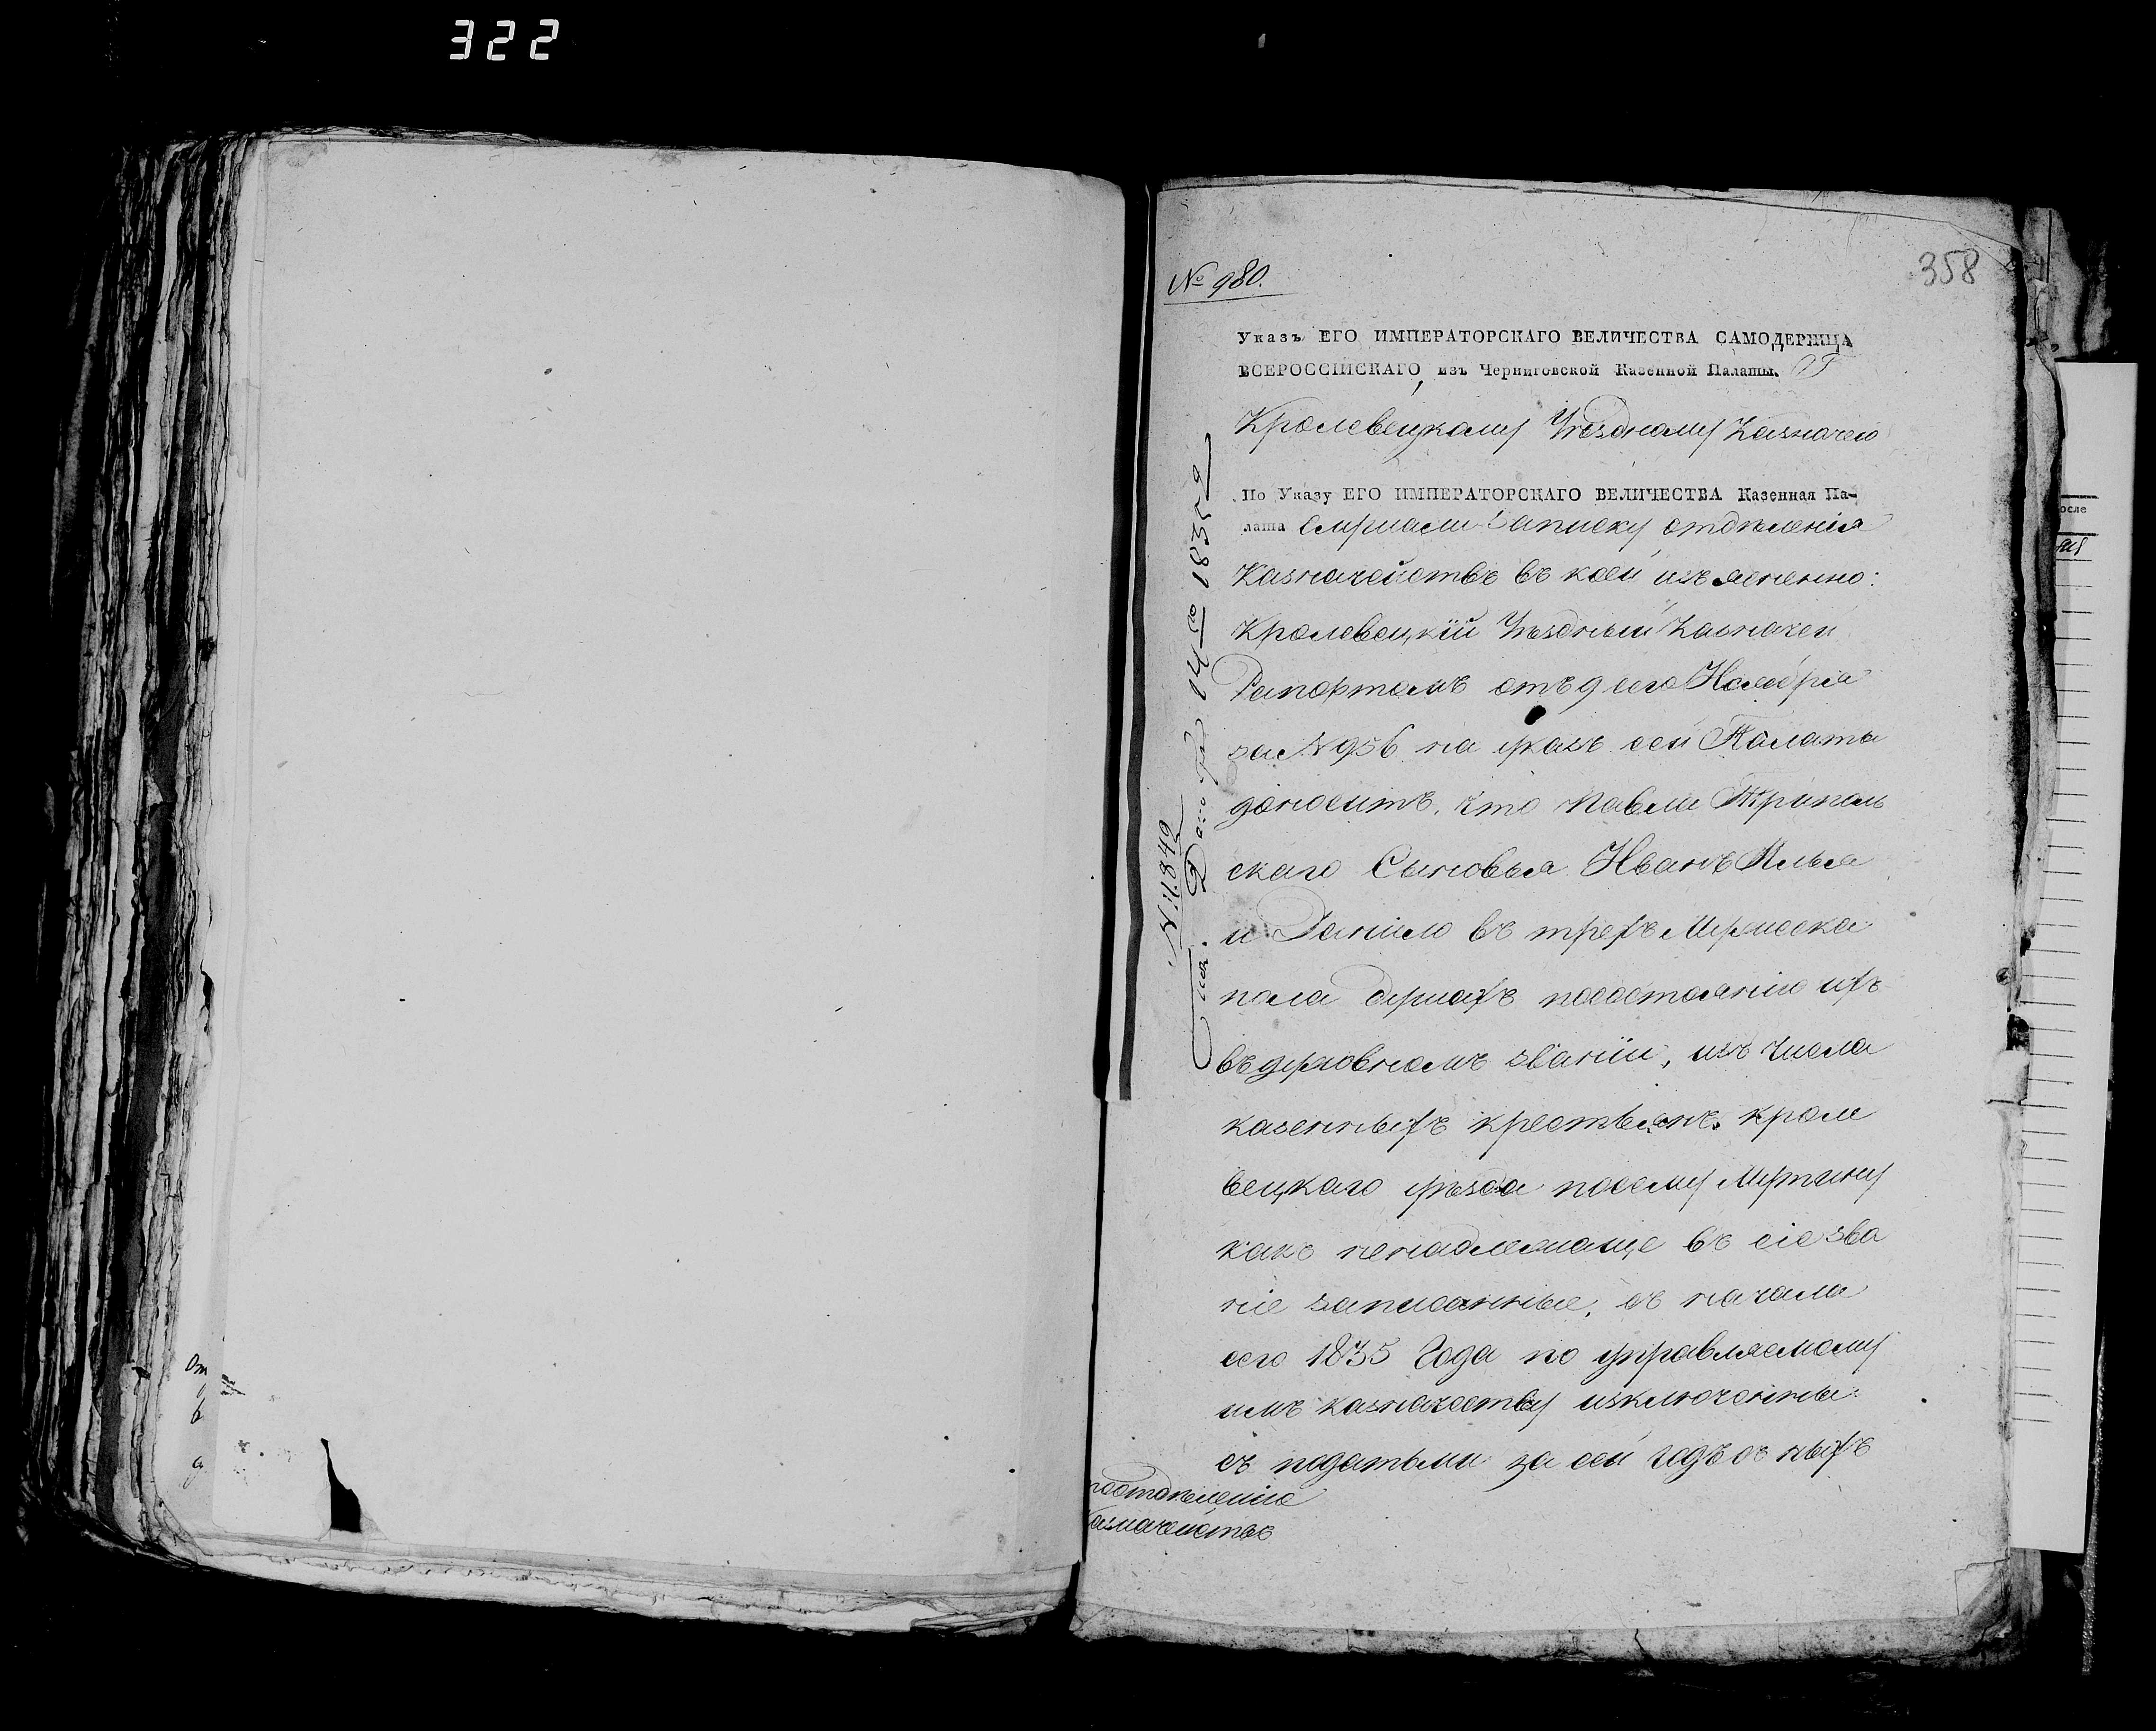 322
358
№ 980.
Указъ ЕГО ИМПЕРАТОРСКАГО ВЕЛИЧЕСТВА САМОДЕРЖЦА
ВСЕРОССІЙСКАГО, изъ Черниговской Казенной Палаты.
Кролевецкому Уѣздному Казначею
По Указу ЕГО ИМПЕРАТОРСКАГО ВЕЛИЧЕСТВА Казенная Па-
лата слушали Записку отдѣленія
Казначействъ въ коей изъясненно:
Кролевецкій Уѣздный Казначей
Рапортомъ отъ 9 сего Ноября
за № 956 на указъ сей Палаты
доноситъ, что Павла Триполь
скаго Сыновья Иванъ Илья
и Данило въ трехъ Мужеска
пола душахъ посостоянію ихъ
въ духовномъ званіи, изъ числа
казенныхъ крестьянъ кроле
вецкаго уѣзда посему Мѣстечку
какъ ненадлежаще въ сіе зва
ніе записанные, съ начала
сего 1835 Года по управляемому
имъ казначеству изключенны
съ податьми за сей годъ съ ныхъ
поотдѣленію
Казначействъ
N. 11849
1835 г
осле